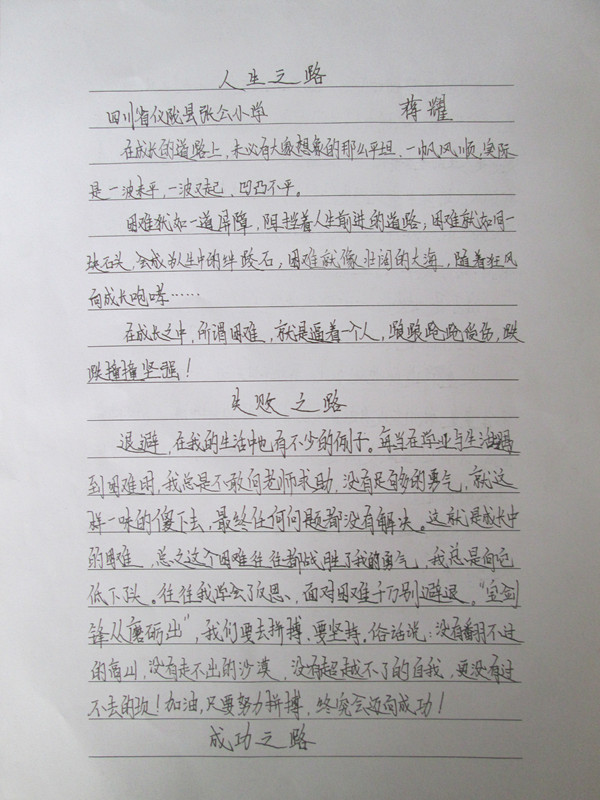 人生之路
四川省仪陇县张公小学 蒋耀
在成长的道路上，未必有大家想象的那么平坦、一帆风顺，实际
是一波未平，一波又起、凹凸不平。
困难犹如一道屏障，阻挡着人生前进的道路；困难就如同一
块石头，会成为人生中的绊脚石；困难就像壮阔的大海，随着狂风
而成长咆哮……
在成长之中，所谓困难，就是逼着一个人，踉踉跄跄负伤，跌
跌撞撞坚强！
失败之路
退避，在我的生活中也有不少的例子。每当在学业与生活遇
到困难时，我总是不敢向老师求助，没有足够的勇气，就这
样一味的傻下去，最终任何问题都没有解决。这就是成长中
的困难，总之这个困难往往都战胜了我的勇气，我总是向它
低下头。往往我学会了反思、面对困难千万别避退。“宝剑
锋从磨砺出”，我们要去拼搏、要坚持。俗话说：没有翻不过
的高山，没有走不出的沙漠，没有超越不了的自我，更没有过
不去的坎！加油，只要努力拼搏，终究会迈向成功！
成功之路